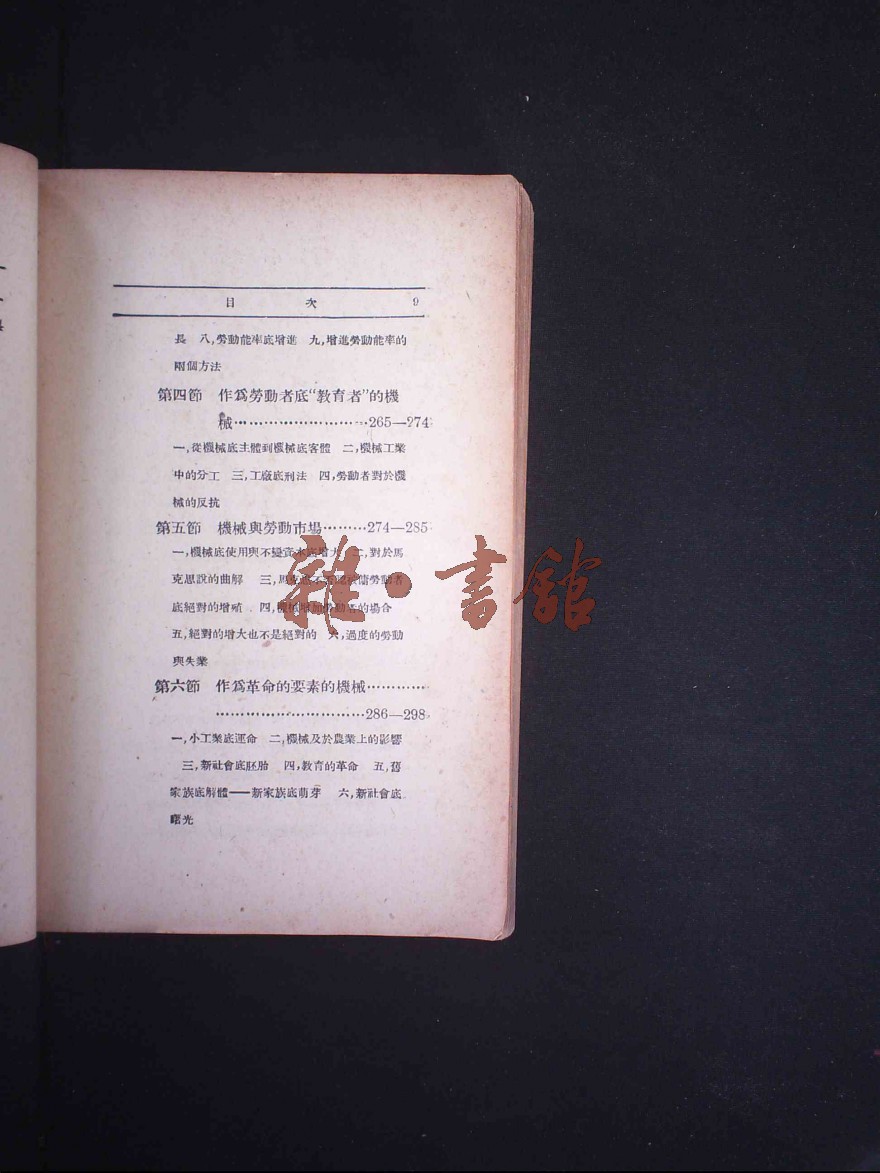 目 次 9
長 八,勞動能率底增進 九,增進勞動能率的
兩個方法
第四節 作爲勞動者底“教育者”的機
械………………………265—274
一,從機械底主體到機械底客體 二,機械工業
中的分工 三,工廠底刑法 四,勞動者對於機
械的反抗
第五節 機械與勞動市場………274—285
一,機械底使用與不變資本底增大 二,對於馬
克思說的曲解 三,馬克思 勞動者
底絕對的增殖 四,機械增加勞動者的場合
五,絕對的增大也不是絕對的 六,過度的勞動
與失業
第六節 作爲革命的要素的機械…………
…………………………286—298
一,小工業底運命 二,機械及於農業上的影響
三,新社會底胚胎 四,教育的革命 五,舊
家族底解體——新家族底萌芽 六,新社會底
曙光
雜·書館